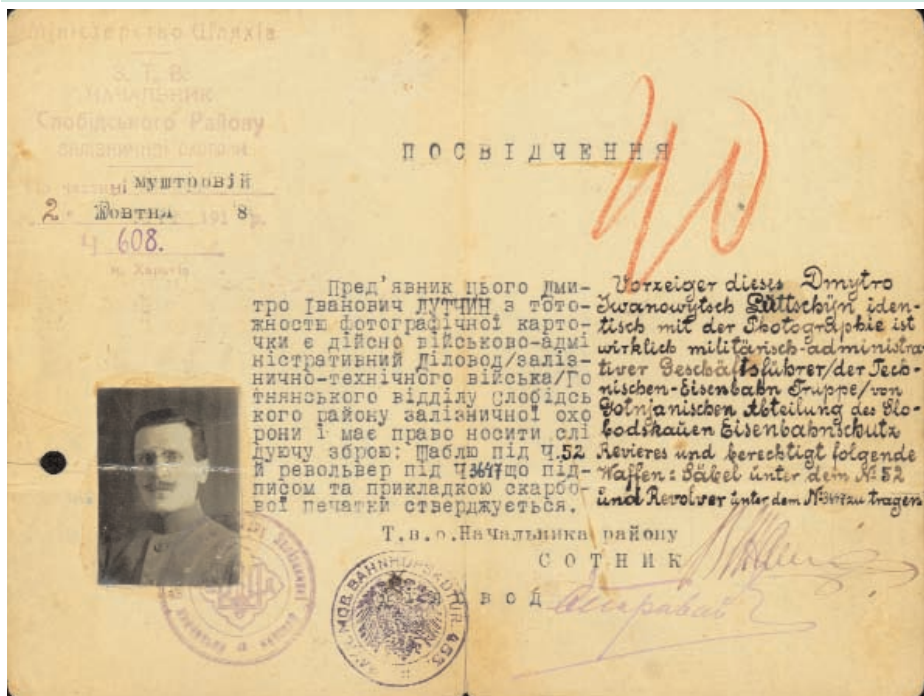 Міністерство Шляхів
З. Т. В.
НАЧАЛЬНИК
Слобідського Району
залізничної охорони
По частині муштровій
2 Жовтня 1918 р.
Ч 608.
м. Харьків
ПОСВІДЧЕННЯ
40
Пред'явник цього Дми-
тро Іванович ЛУТЧИН з тото-
жностю фотографічної карто-
чки є дійсно військово-адмі
ністративний Діловод/заліз-
нично-технічного війська/Го
тнянського відділу Слобідсь
кого району залізничної охо
рони і має право носити слі
дуючу зброю: Шаблю під Ч.52
й револьвер під Ч3647що під-
писом та прикладкою скарбо-
вої печатки стверджується.
Т.в.о.Начальника району
СОТНИК
ВОД
Vorzeiger dieses Dmytro
Iwanowytsch Luttschyn iden-
tisch mit der Photographie ist
wirklich militärisch-administra
tiver Geschäftsführer/der Tech-
nischen-Eisenbahn Truppe/von
Gotnjanischen Abteilung des Slo-
bodskauen Eisenbahnschutz
Revieres und berechtigt folgende
Waffen: Säbel unter dem № 52
und Revolver unter dem №3647 zu tragen
MOB. BAHNHOFSKDTUR. 453.